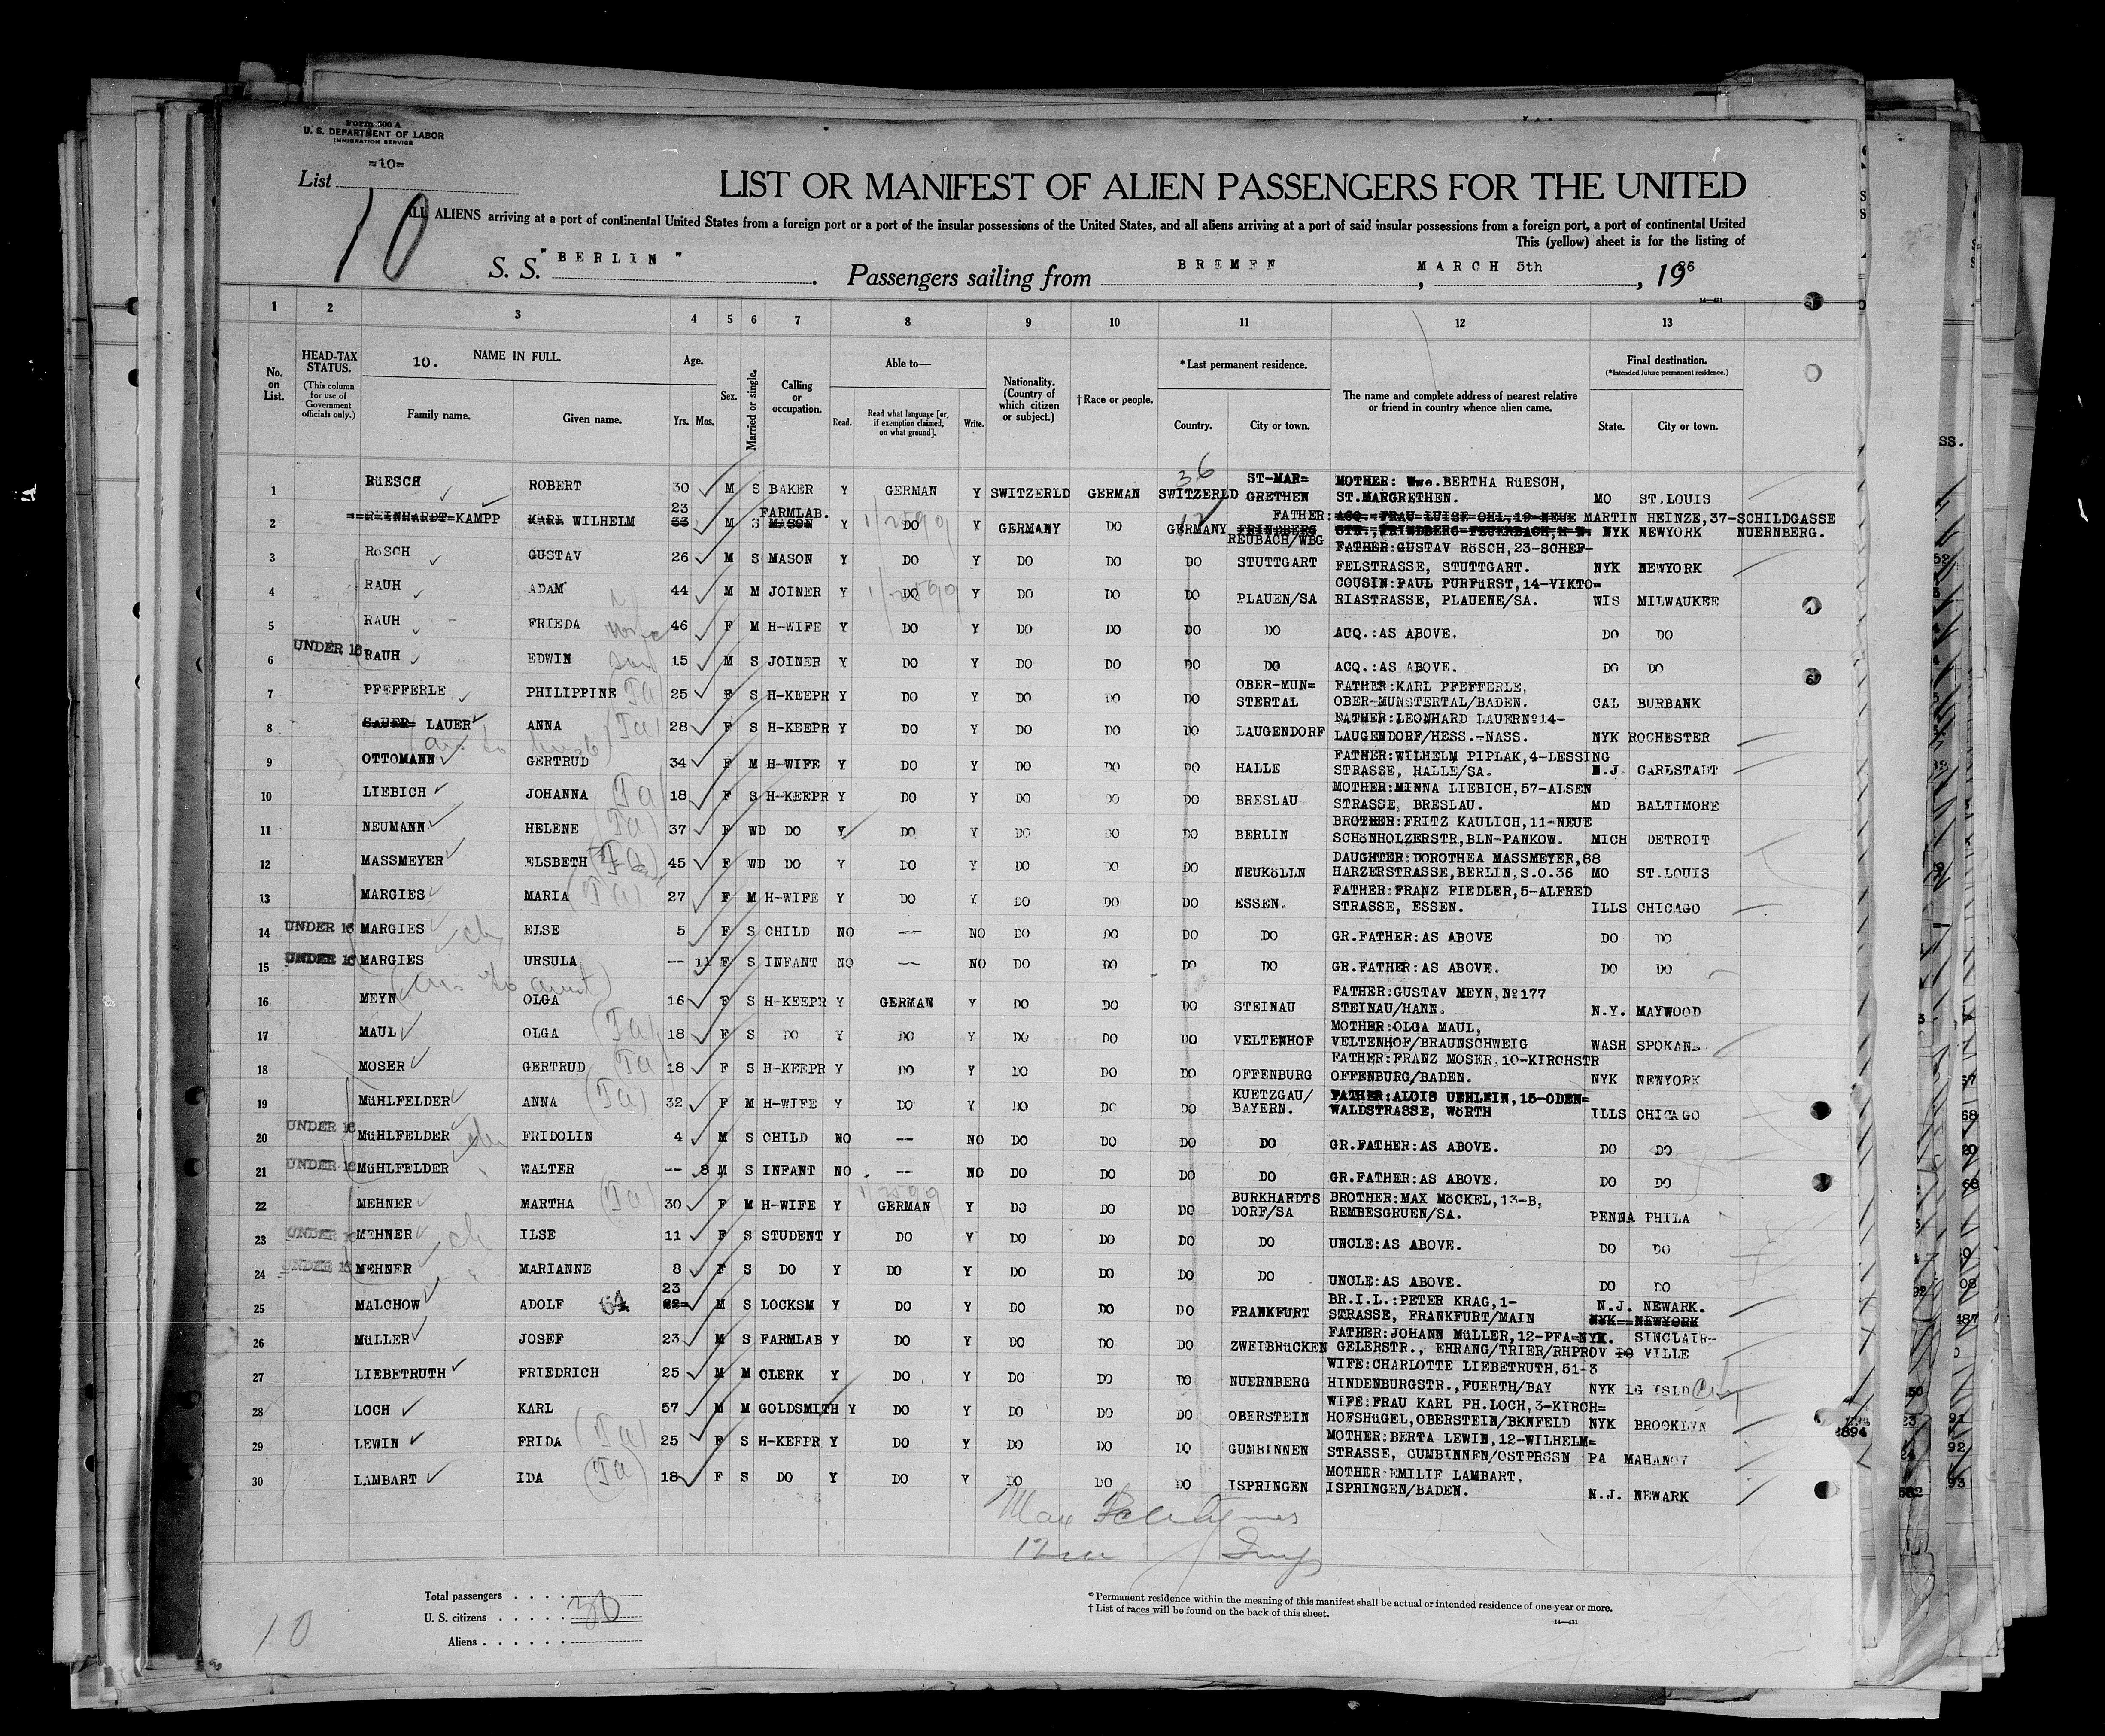 Form 500 A
U. S. DEPARTMENT OF LABOR
IMMIGRATION SERVICE
=10=
List
10
LIST OR MANIFEST OF ALIEN PASSENGERS FOR THE UNITED
ALL ALIENS arriving at a port of continental United States from a foreign port or a port of the insular possessions of the United States, and all aliens arriving at a port of said insular possessions from a foreign port, a port of continental United
This (yellow) sheet is for the listing of
S. S. "BERLIN". Passengers sailing from BREMEN, MARCH 5th, 1926
14—431
1 2 3 4 5 6 7 8 9 10 11 12 13
No. on List.
HEAD-TAX STATUS. (This column for use of Government officials only.)
10. NAME IN FULL.
Family name. Given name.
Age. Yrs. Mos.
Sex.
Married or single.
Calling or occupation.
Able to—
Read. Read what language [or, if exemption claimed, on what ground]. Write.
Nationality. (Country of which citizen or subject.)
†Race or people.
*Last permanent residence.
Country. City or town.
The name and complete address of nearest relative or friend in country whence alien came.
Final destination. (*Intended future permanent residence.)
State. City or town.
1 RüESCH ROBERT 30 M S BAKER Y GERMAN Y SWITZERLD GERMAN 36 SWITZERLD ST-MAR= GRETHEN MOTHER: Wwe.BERTHA RüESCH, ST.MARGRETHEN. MO ST.LOUIS
2 ==REINHARDT=KAMPP KARL WILHELM 23 33 M S FARMLAB. MASON Y DO Y GERMANY DO GERMANY FRIEDBERG REUBACH/WBG FATHER: ACQ.:FRAU LUISE OHL,19-NEUE STR.,FRIEDBERG-FEUERBACH,H-N. MARTIN HEINZE,37-SCHILDGASSE NUERNBERG. NYK NEWYORK
3 RöSCH GUSTAV 26 M S MASON Y DO Y DO DO DO STUTTGART FATHER:GUSTAV RöSCH,23-SCHEF- FELSTRASSE, STUTTGART. NYK NEWYORK
4 RAUH ADAM 44 M M JOINER Y DO Y DO DO DO PLAUEN/SA COUSIN:PAUL PURFüRST,14-VIKTO= RIASTRASSE, PLAUENE/SA. WIS MILWAUKEE
5 RAUH FRIEDA 46 F M H-WIFE Y DO Y DO DO DO DO ACQ.:AS ABOVE. DO DO
6 UNDER 16 RAUH EDWIN son 15 M S JOINER Y DO Y DO DO DO DO ACQ.:AS ABOVE. DO DO
7 PFEFFERLE PHILIPPINE 25 F S H-KEEPR Y DO Y DO DO DO OBER-MUN= STERTAL FATHER:KARL PFEFFERLE, OBER-MUNSTERTAL/BADEN. CAL BURBANK
8 SAUER= LAUER ANNA 28 F S H-KEEPR Y DO Y DO DO DO LAUGENDORF FATHER:LEONHARD LAUERNo14- LAUGENDORF/HESS.-NASS. NYK ROCHESTER
9 OTTOMANN GERTRUD 34 F M H-WIFE Y DO Y DO DO DO HALLE FATHER:WILHELM PIPLAK,4-LESSING STRASSE, HALLE/SA. N.J. CARLSTADT
10 LIEBICH JOHANNA 18 F S H-KEEPR Y DO Y DO DO DO BRESLAU MOTHER:MINNA LIEBICH,57-ALSEN STRASSE, BRESLAU. MD BALTIMORE
11 NEUMANN HELENE 37 F WD DO Y DO Y DO DO DO BERLIN BROTHER:FRITZ KAULICH,11-NEUE SCHöNHOLZERSTR,BLN-PANKOW. MICH DETROIT
12 MASSMEYER ELSBETH 45 F WD DO Y DO Y DO DO DO NEUKöLLN DAUGHTER:DOROTHEA MASSMEYER,88 HARZERSTRASSE,BERLIN,S.O.36 MO ST.LOUIS
13 MARGIES MARIA 27 F M H-WIFE Y DO Y DO DO DO ESSEN. FATHER:FRANZ FIEDLER,5-ALFRED STRASSE, ESSEN. ILLS CHICAGO
14 UNDER 16 MARGIES ch ELSE 5 F S CHILD NO -- NO DO DO DO DO GR.FATHER:AS ABOVE DO DO
15 UNDER 16 MARGIES URSULA -- 11 F S INFANT NO -- NO DO DO DO DO GR.FATHER:AS ABOVE. DO DO
16 MEYN OLGA 16 F S H-KEEPR Y GERMAN Y DO DO DO STEINAU FATHER:GUSTAV MEYN,No177 STEINAU/HANN. N.Y. MAYWOOD
17 MAUL OLGA 18 F S DO Y DO Y DO DO DO VELTENHOF MOTHER:OLGA MAUL, VELTENHOF/BRAUNSCHWEIG WASH SPOKANE
18 MOSER GERTRUD 18 F S H-KEEPR Y DO Y DO DO DO OFFENBURG FATHER:FRANZ MOSER,10-KIRCHSTR OFFENBURG/BADEN. NYK NEWYORK
19 MüHLFELDER ANNA 32 F M H-WIFE Y DO Y DO DO DO KUETZGAU/ BAYERN. FATHER:ALOIS UEHLEIN,15-ODEN= WALDSTRASSE, WöRTH ILLS CHICAGO
20 UNDER 16 MüHLFELDER FRIDOLIN 4 M S CHILD NO -- NO DO DO DO DO GR.FATHER:AS ABOVE. DO DO
21 UNDER 16 MüHLFELDER WALTER -- 8 M S INFANT NO -- NO DO DO DO DO GR.FATHER:AS ABOVE. DO DO
22 MEHNER MARTHA 30 F M H-WIFE Y GERMAN Y DO DO DO BURKHARDTS DORF/SA BROTHER:MAX MöCKEL,13-B, REMBESGRUEN/SA. PENNA PHILA
23 UNDER 16 MEHNER ch ILSE 11 F S STUDENT Y DO Y DO DO DO DO UNCLE:AS ABOVE. DO DO
24 UNDER 16 MEHNER MARIANNE 8 F S DO Y DO Y DO DO DO DO UNCLE:AS ABOVE. DO DO
25 MALCHOW ADOLF 64 23 22= M S LOCKSM Y DO Y DO DO DO FRANKFURT BR.I.L.:PETER KRAG,1- STRASSE, FRANKFURT/MAIN N.J. NEWARK. NYK==NEWYORK
26 MüLLER JOSEF 23 M S FARMLAB Y DO Y DO DO DO ZWEIBRüCKEN FATHER:JOHANN MüLLER,12-PFA= GELERSTR., EHRANG/TRIER/RHPROV NYK. SINCLAIR- VILLE
27 LIEBETRUTH FRIEDRICH 25 M M CLERK Y DO Y DO DO DO NUERNBERG WIFE:CHARLOTTE LIEBETRUTH,51-3 HINDENBURGSTR.,FUERTH/BAY NYK LG ISLD
28 LOCH KARL 57 M M GOLDSMITH Y DO Y DO DO DO OBERSTEIN WIFE:FRAU KARL PH.LOCH,3-KIRCH= HOFSHüGEL,OBERSTEIN/BKNFELD NYK BROOKLYN
29 LEWIN FRIDA 25 F S H-KEEPR Y DO Y DO DO DO GUMBINNEN MOTHER:BERTA LEWIN,12-WILHELM= STRASSE, GUMBINNEN/OSTPRSSN PA MAHANOY
30 LAMBART IDA 18 F S DO Y DO Y DO DO DO ISPRINGEN MOTHER:EMILIE LAMBART, ISPRINGEN/BADEN. N.J. NEWARK
Total passengers . . . .
U. S. citizens . . . . . 30
Aliens . . . . . .
*Permanent residence within the meaning of this manifest shall be actual or intended residence of one year or more.
†List of races will be found on the back of this sheet.
14—431
10